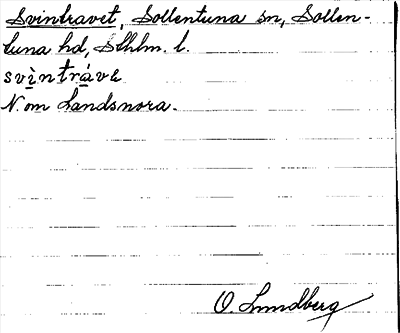 Svintravet, Sollentuna sn, Sollen-
tuna hd, Sthlm. l.
svìntráve
N. om Landsnora.
O. Lundberg